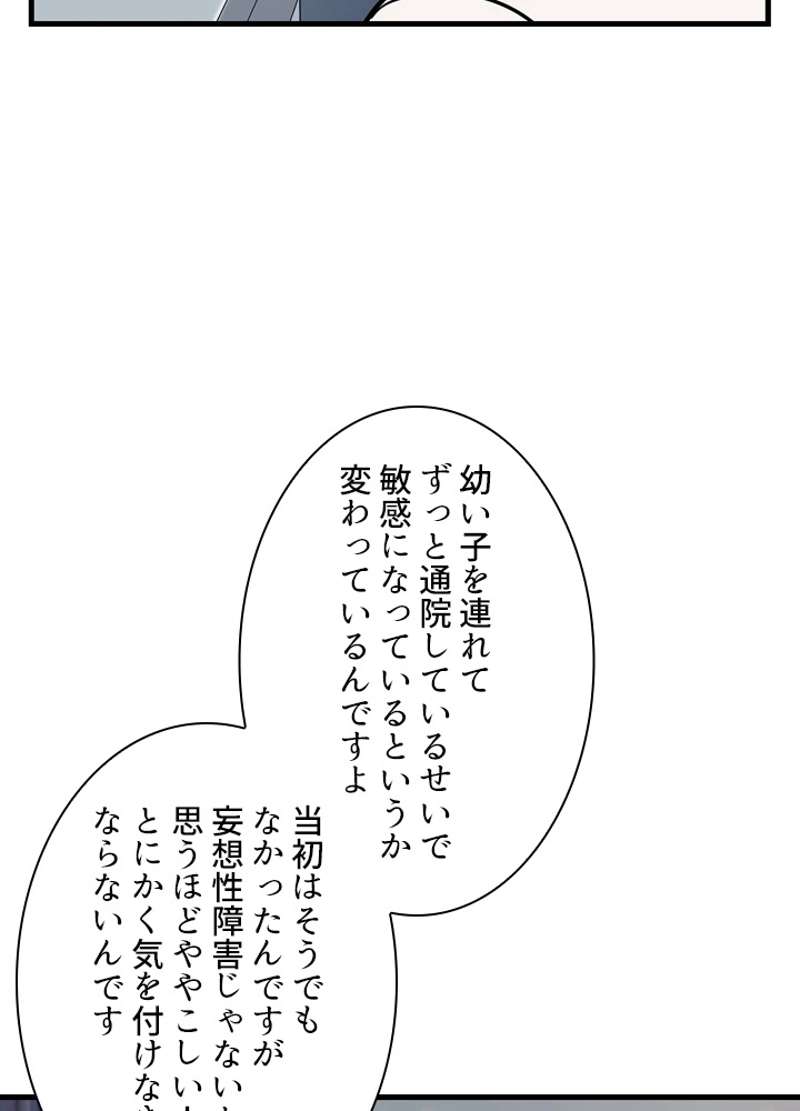 幼い子を連れて
ずっと通院しているせいで
敏感になっているというか
変わっているんですよ
当初はそうでも
なかったんですが
妄想性障害じゃない
思うほどややこしい
とにかく気を付けな
ならないんです